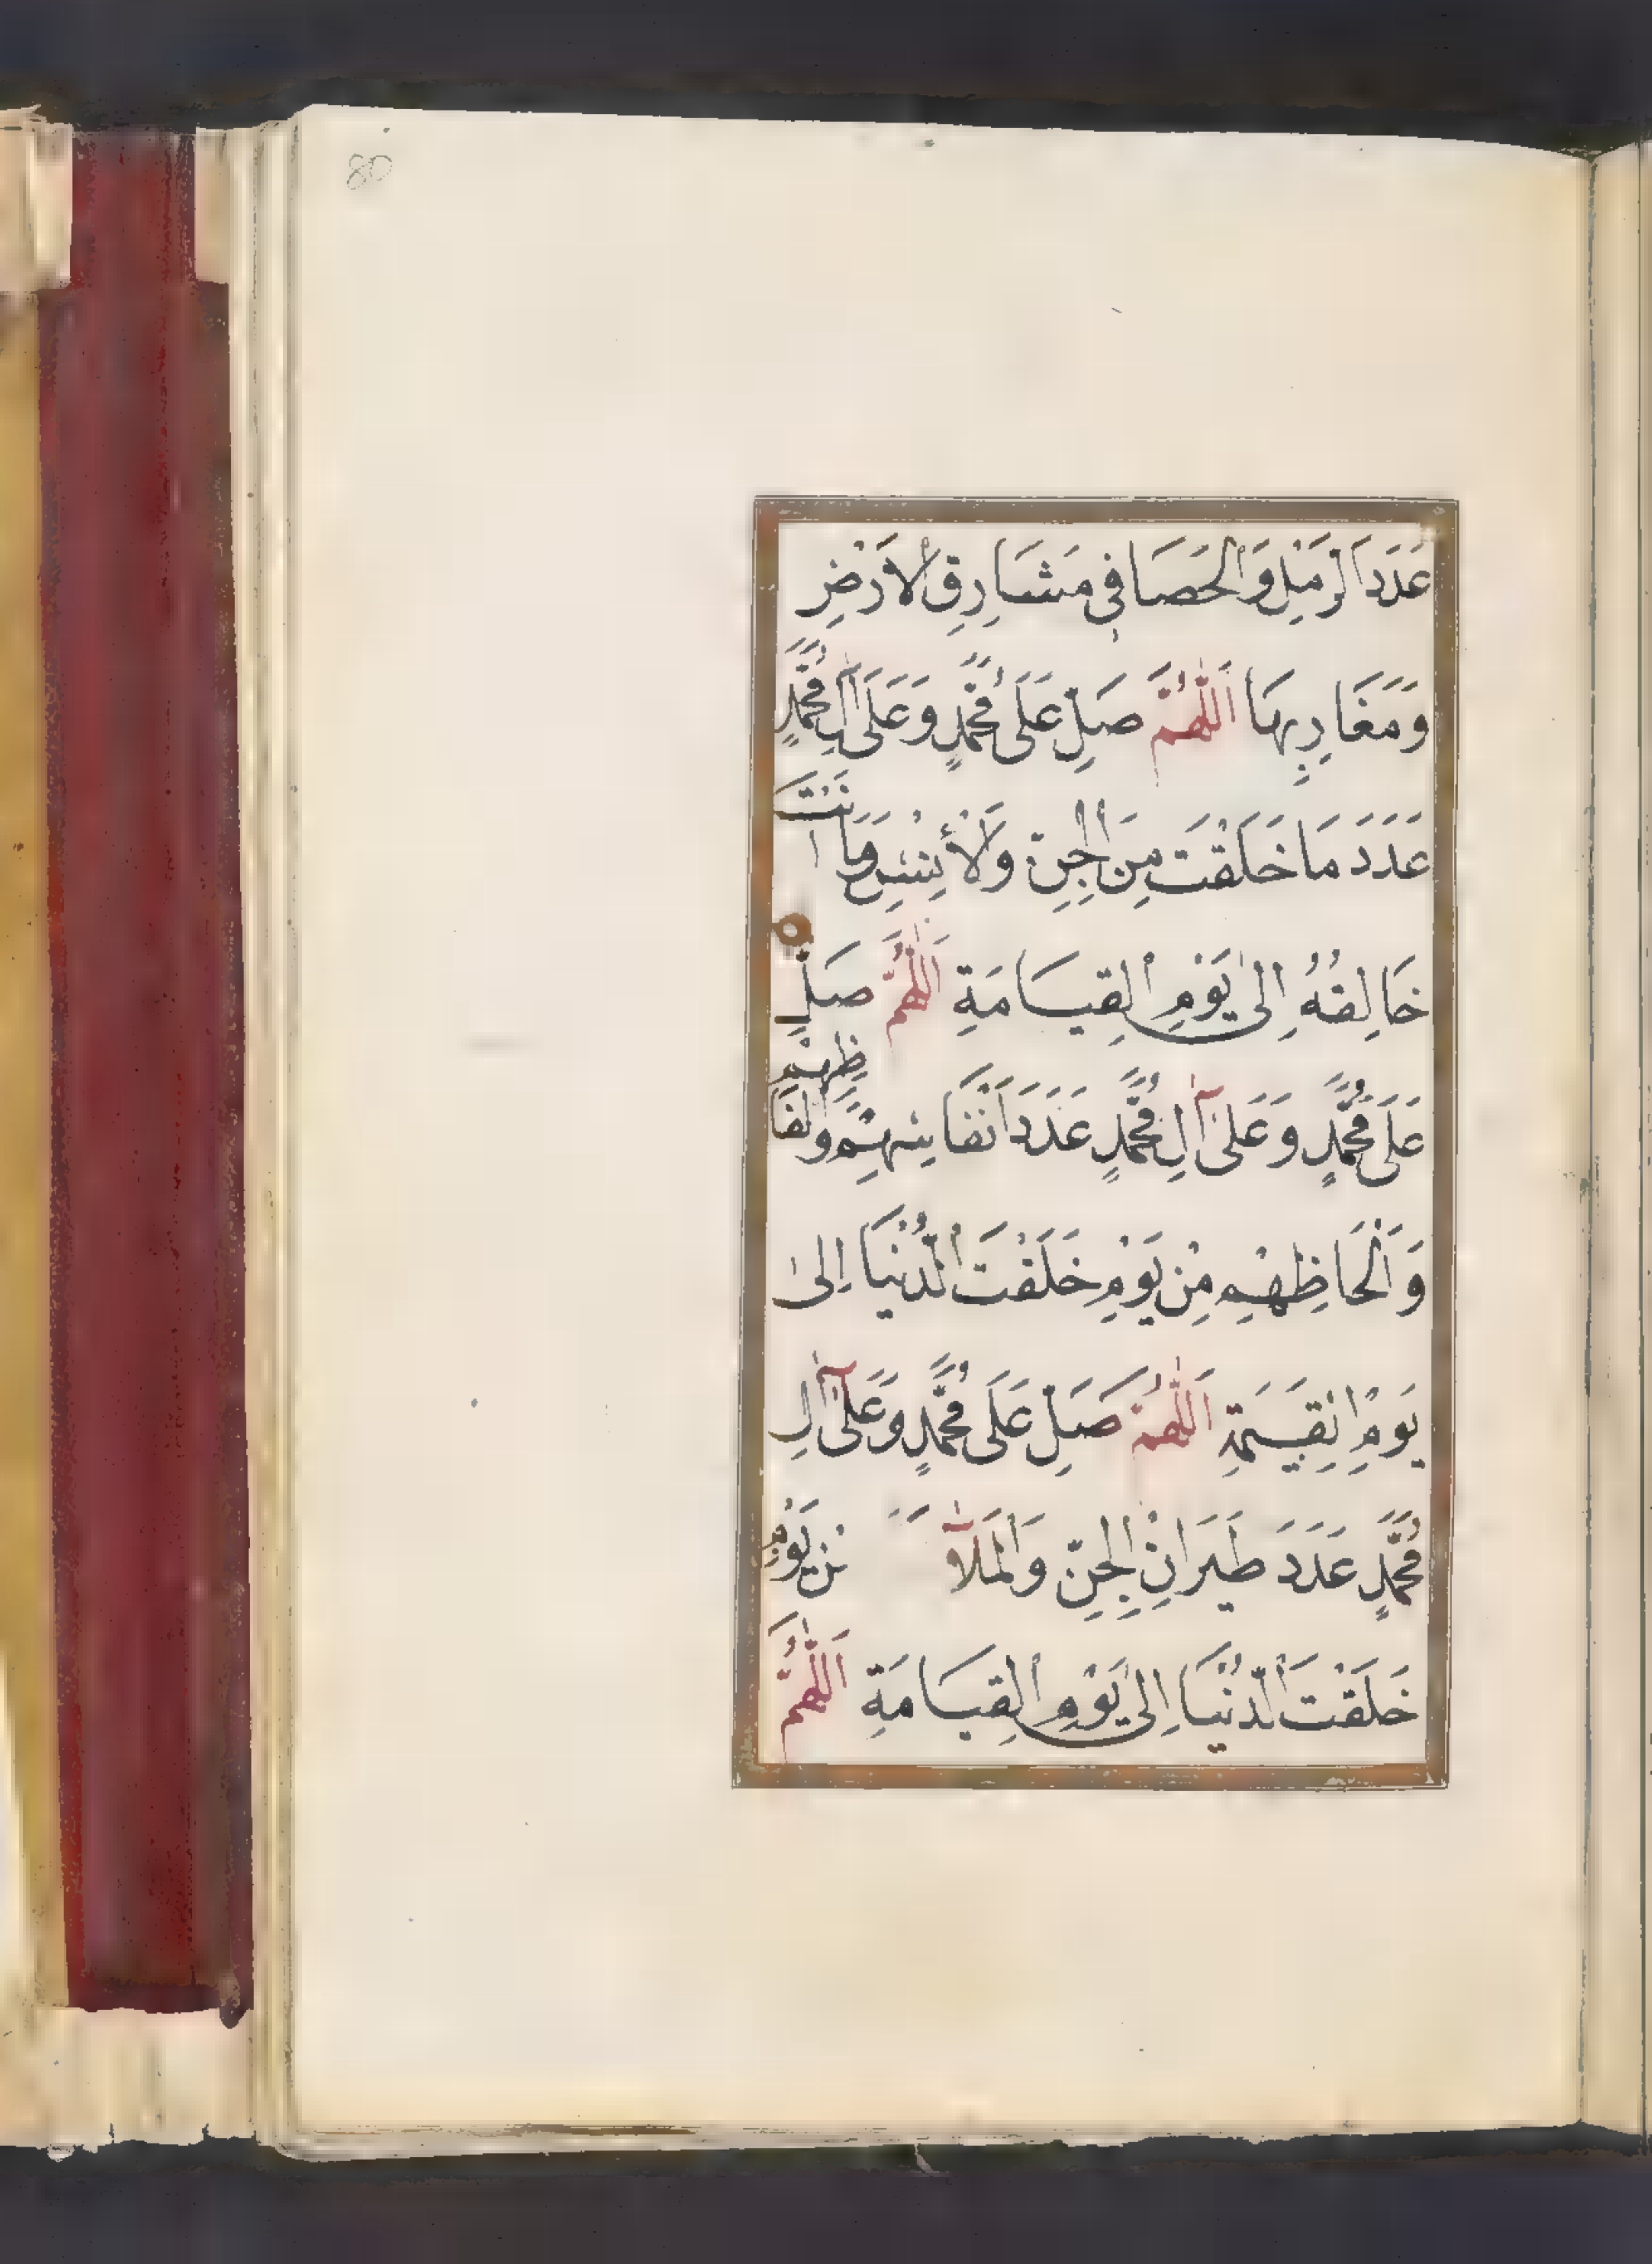 80
عَدَدَ الرَّمْلِ وَالْحَصَا فِى مَشَارِقِ الْاَرْضِ
وَمَغَارِبِهَا اَللّٰهُمَّ صَلِّ عَلَى مُحَمَّدٍ وَعَلَى اٰلِ مُحَمَّدٍ
عَدَدَ مَا خَلَقْتَ مِنَ الْجِنِّ وَلْأِنْسِ وَمَا اَنْتَ
خَالِقُهُ اِلٰى يَوْمِ الْقِيَامَةِ اَللّٰهُمَّ صَلِّ
عَلَى مُحَمَّدٍ وَعَلٰى اٰلِ مُحَمَّدٍ عَدَدَ اَنْفَاسِهِمْ وَ
وَاَلْحَاظِهِمْ مِنْ يَوْمِ خَلَقْتَ الدُّنْيَا اِلٰى
يَوْمِ الْقِيٰمَةِ اَللّٰهُمَّ صَلِّ عَلَى مُحَمَّدٍ وَعَلٰى اٰلِ
مُحَمَّدٍ عَدَدَ طَيَرَانِ الْجِنِّ وَالْمَلآ مِنْ يَوْمِ
خَلَقْتَ الدُّنْيَا اِلٰى يَوْمِ الْقِيَامَةِ اَللّٰهُمَّ